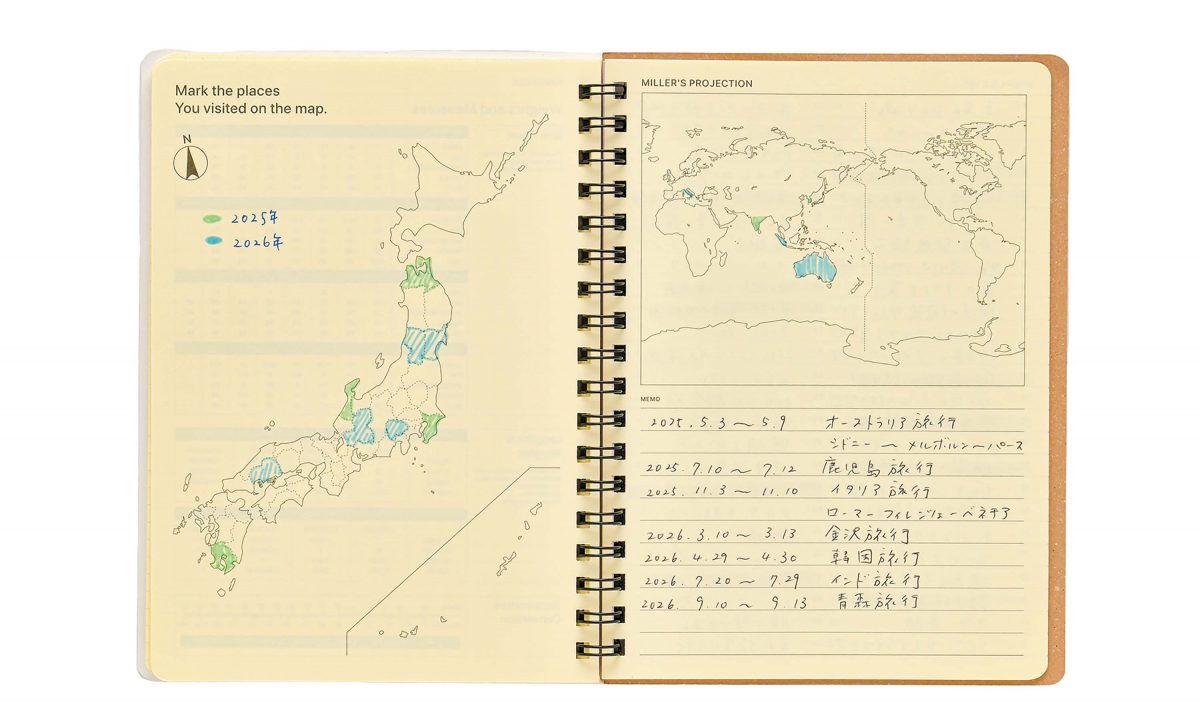 Mark the places
You visited on the map.
N
2025年
2026年
MILLER'S PROJECTION
MEMO
2025. 5.3 〜 5.9 オーストラリア旅行
シドニー 〜 メルボルン〜パース
2025. 7.10 〜 7.12 鹿児島旅行
2025. 11.3 〜 11.10 イタリア旅行
ローマーフィレンツェーベネチア
2026. 3.10 〜 3.13 金沢旅行
2026. 4.29 〜 4.30 韓国旅行
2026. 7.20 〜 7.29 インド旅行
2026. 9.10 〜 9.13 青森旅行